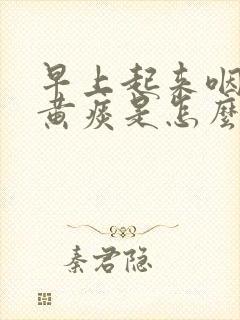 早上起来咽
黄痰是怎么
秦君隐